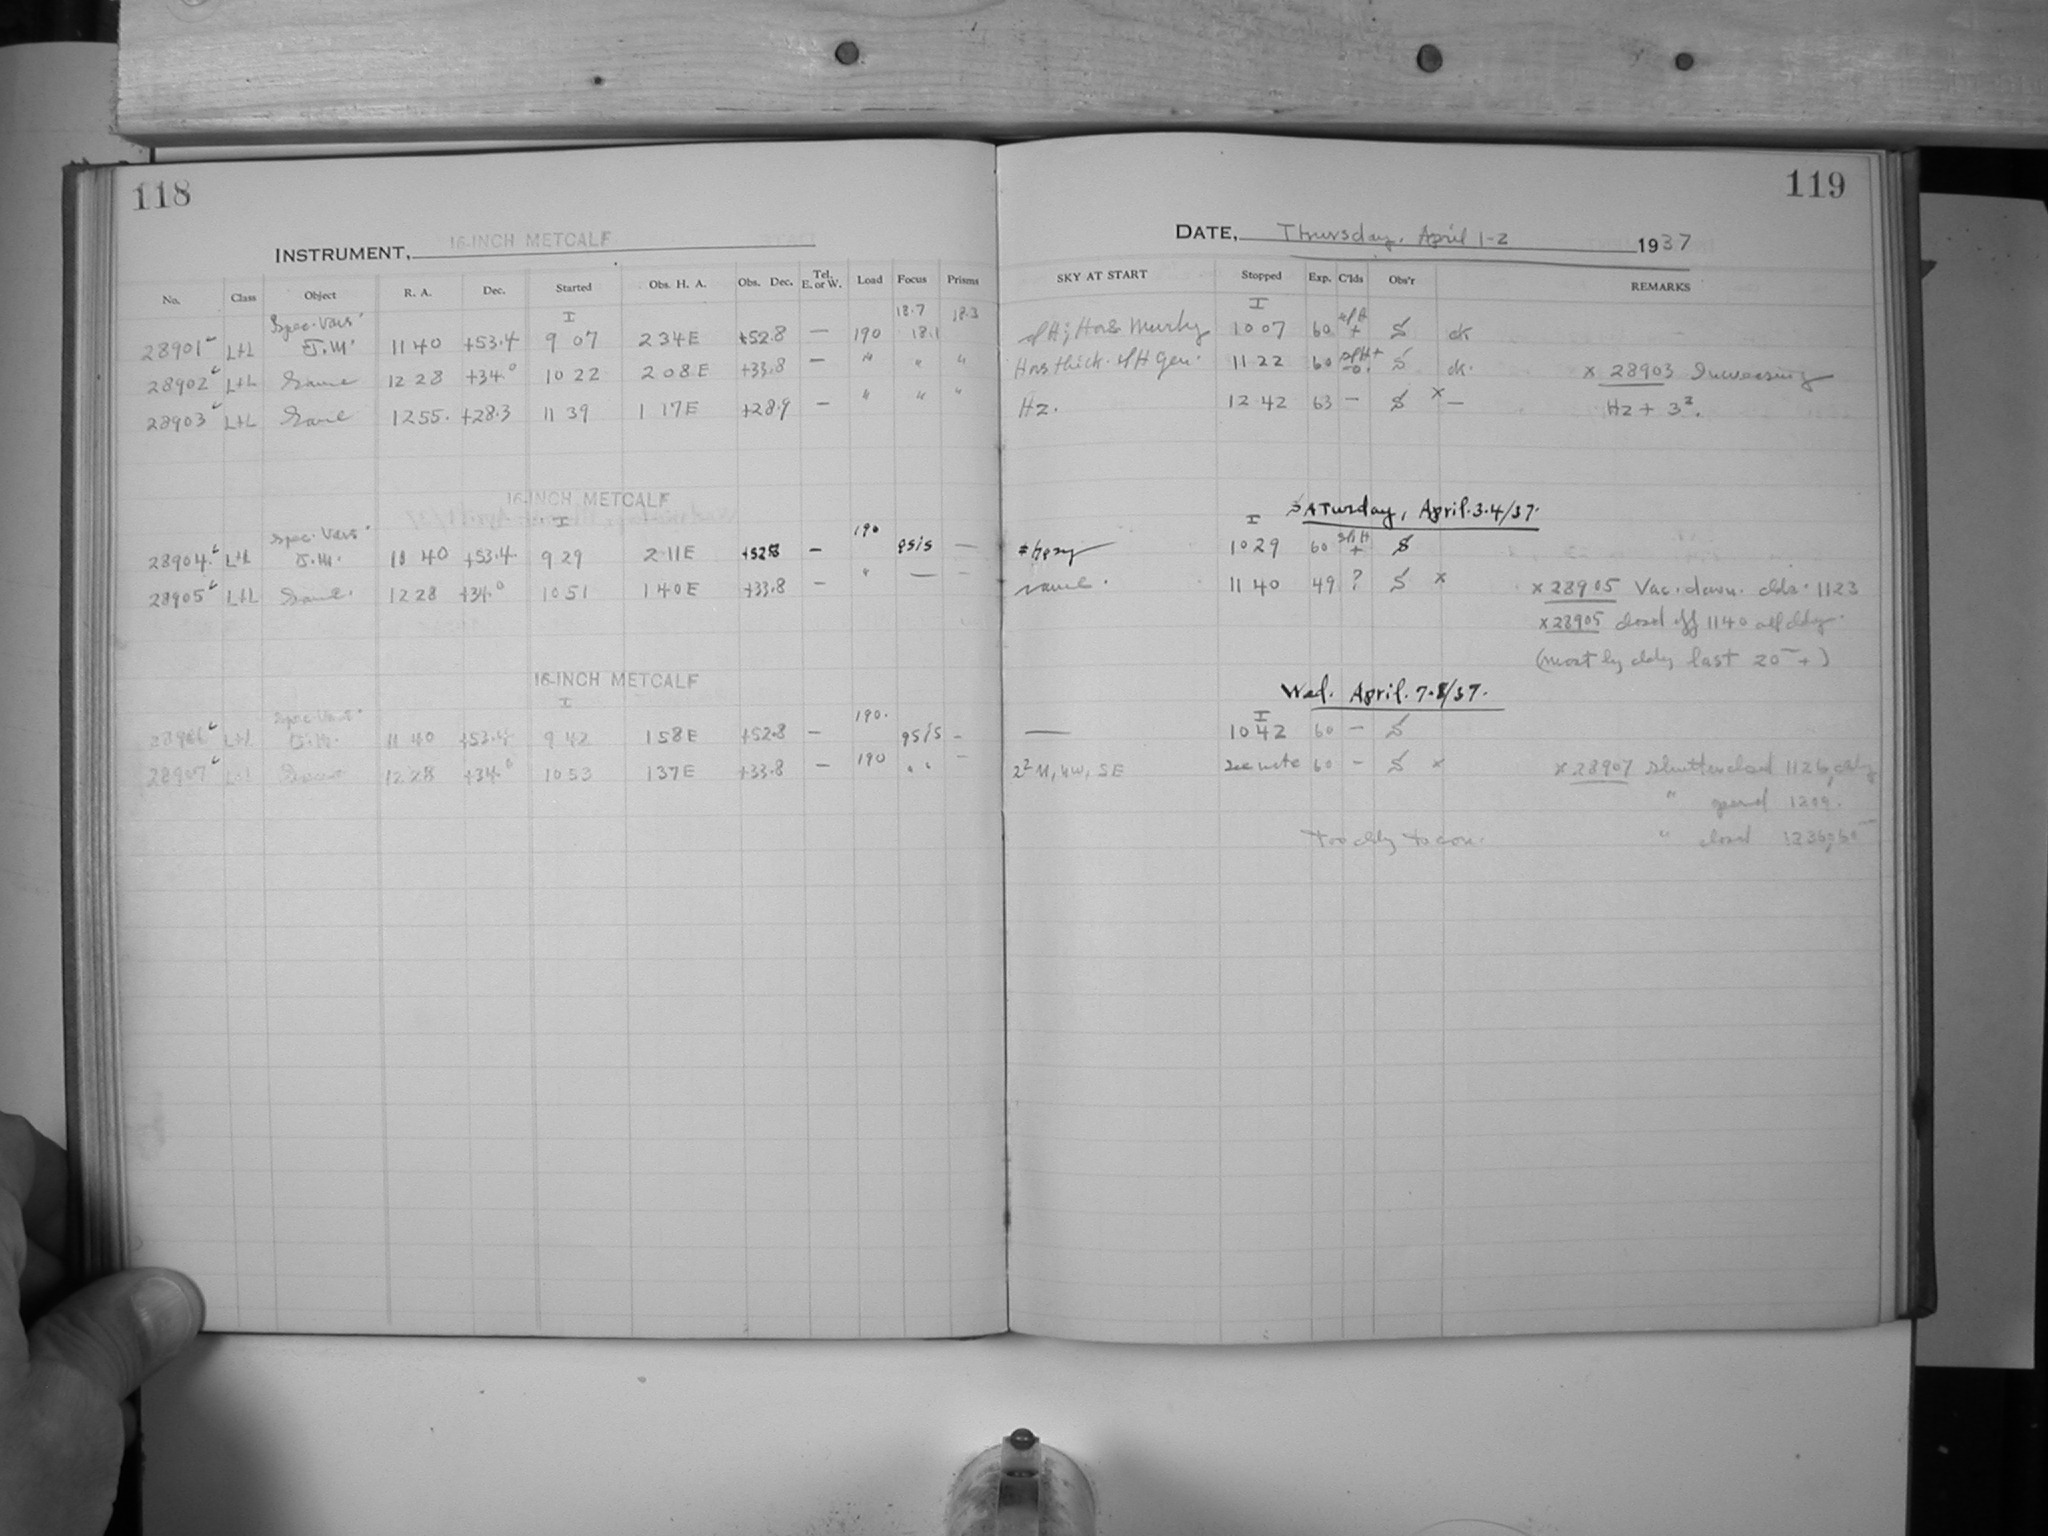 118
INSTRUMENT, 16-INCH METCALF
No. Class Object R. A. Dec. Started Obs. H. A. Obs. Dec. Tel. E. or W. Load Focus Prisms
Spec. Vars. I 18.7 18.3
28901 L+L J.M. 11 40 +53.4 9 07 2 34E +52.8 — 190 18.1
28902 L+L Same 12 28 +34.0 10 22 2 08E +33.8 — " " "
28903 L+L Same 12 55. +28.3 11 39 1 17E +28.9 — " " "
16-INCH METCALF
Spec. Vars. I 190
28904 L+L J.M. 11 40 +53.4 9 29 2 11E +52.8 — —
28905 L+L Same. 12 28 +34.0 10 51 1 40E +33.8 — " — —
16-INCH METCALF
Spec. Vars. I 190.
28906 L+L J.M. 11 40 +53.4 9 42 1 58E +52.8 — —
28907 L+L Same 12 28 +34.0 10 53 1 37E +33.8 — 190 " —
119
DATE, Thursday, April 1-2 1937
SKY AT START Stopped Exp. C'lds Obs'r REMARKS
I
Hor & Murky 10 07 60 + S ok
Hor thick. Gen. 11 22 60 S ok. x 28903 Increasing
Hz. 12 42 63 — S x — Hz +
Saturday, April. 3-4/37.
I
10 29 60 + S
same. 11 40 49 ? S x x 28905 Vac. down. clds. 1123
x 28905 closed off 1140 all cldy.
(mostly cldy last 20 +)
Wed. April. 7-8/37.
I
— 10 42 60 — S
NW, SE See note 60 — S x x 28907 Shutter closed 1126, cldy
" opened 1209.
Too cldy to con. " closed 1236, 60